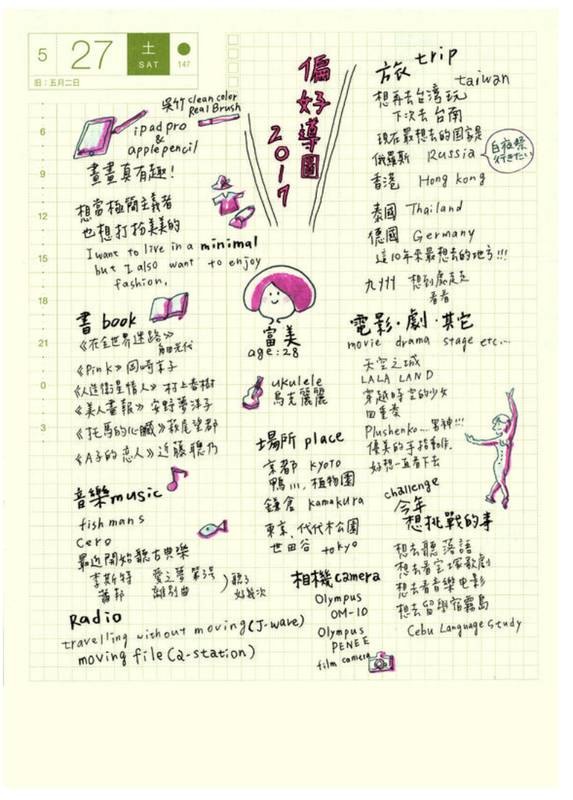 5
27
土
SAT
147
旧:五月二日
6
9
12
15
18
21
0
3
偏好導圖
2017
吳竹 clean color
Real Brush
ipad pro
&
apple pencil
畫畫真有趣!
想當極簡主義者
也想打扮美美的
I want to live in a minimal
but I also want to enjoy
fashion.
書 book
《在全世界迷路》
角田光代
《Pink》岡崎京子
《人造衛星情人》村上春樹
《美人畫報》安野夢洋子
《托馬的心臟》萩尾望都
《A子的恋人》近藤聰乃
音樂 music
fishmans
Cero
最近開始聽古典樂
李斯特 愛之夢第3号
蕭邦 離別曲
聽了
好幾次
Radio
travelling without moving (J-wave)
moving file (α-station)
富美
age:28
ukulele
烏克麗麗
場所 place
京都 kyoto
鴨川, 植物園
鎌倉 kamakura
東京, 代代木公園
世田谷 tokyo
相機 camera
Olympus
OM-10
Olympus
PENEE
film camera
旅 trip
taiwan
想再去台湾玩
下次去台南
現在最想去的国家是
俄羅斯 Russia
白夜祭
行きたい
香港 Hong kong
泰國 Thailand
德國 Germany
這10年來最想去的地方!!!
九州 想到處走走
看看
電影·劇·其它
movie drama stage etc...
天空之城
LALA LAND
穿越時空的少女
四重奏
Plushenko...男神!!!
優美的手指動作.
好想一直看下去
challenge
今年
想挑戰的事
想去聽落語
想去看宝塚歌劇
想去看音樂电影
想去留學宿霧島
Cebu Language Study